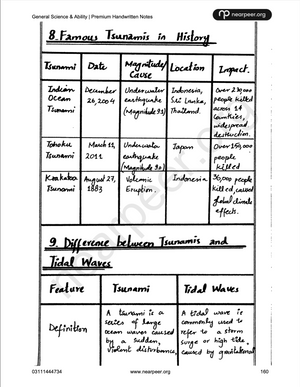 General Science & Ability | Premium Handwritten Notes
nearpeer.org
8. Famous Tsunamis in History
Tsunami Date Magnitude/ Cause Location Impact.
Indian Ocean Tsunami December 26, 2004 Underwater earthquake (Magnitude 9.1) Indonesia, Sri Lanka, Thailand. Over 230,000 people killed across 14 countries, widespread destruction.
Tohoku Tsunami March 11, 2011 Underwater earthquake (Magnitude 9.0) Japan people killed
Krakatoa Tsunami August 27, 1883 Volcanic Eruption. Indonesia 36,000 people killed, caused global climate effects.
9. Difference between Tsunamis and
Tidal Waves
Feature Tsunami Tidal Waves
Definition A tsunami is a series of large ocean waves caused by a sudden, violent disturbance, A tidal wave is commonly used to refer to a storm surge or high tide, caused by gravitational
03111444734
www.nearpeer.org
160